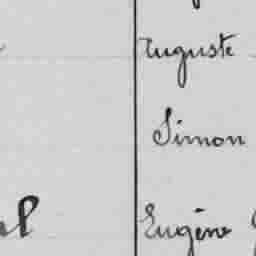 Auguste
Simon
Eugène